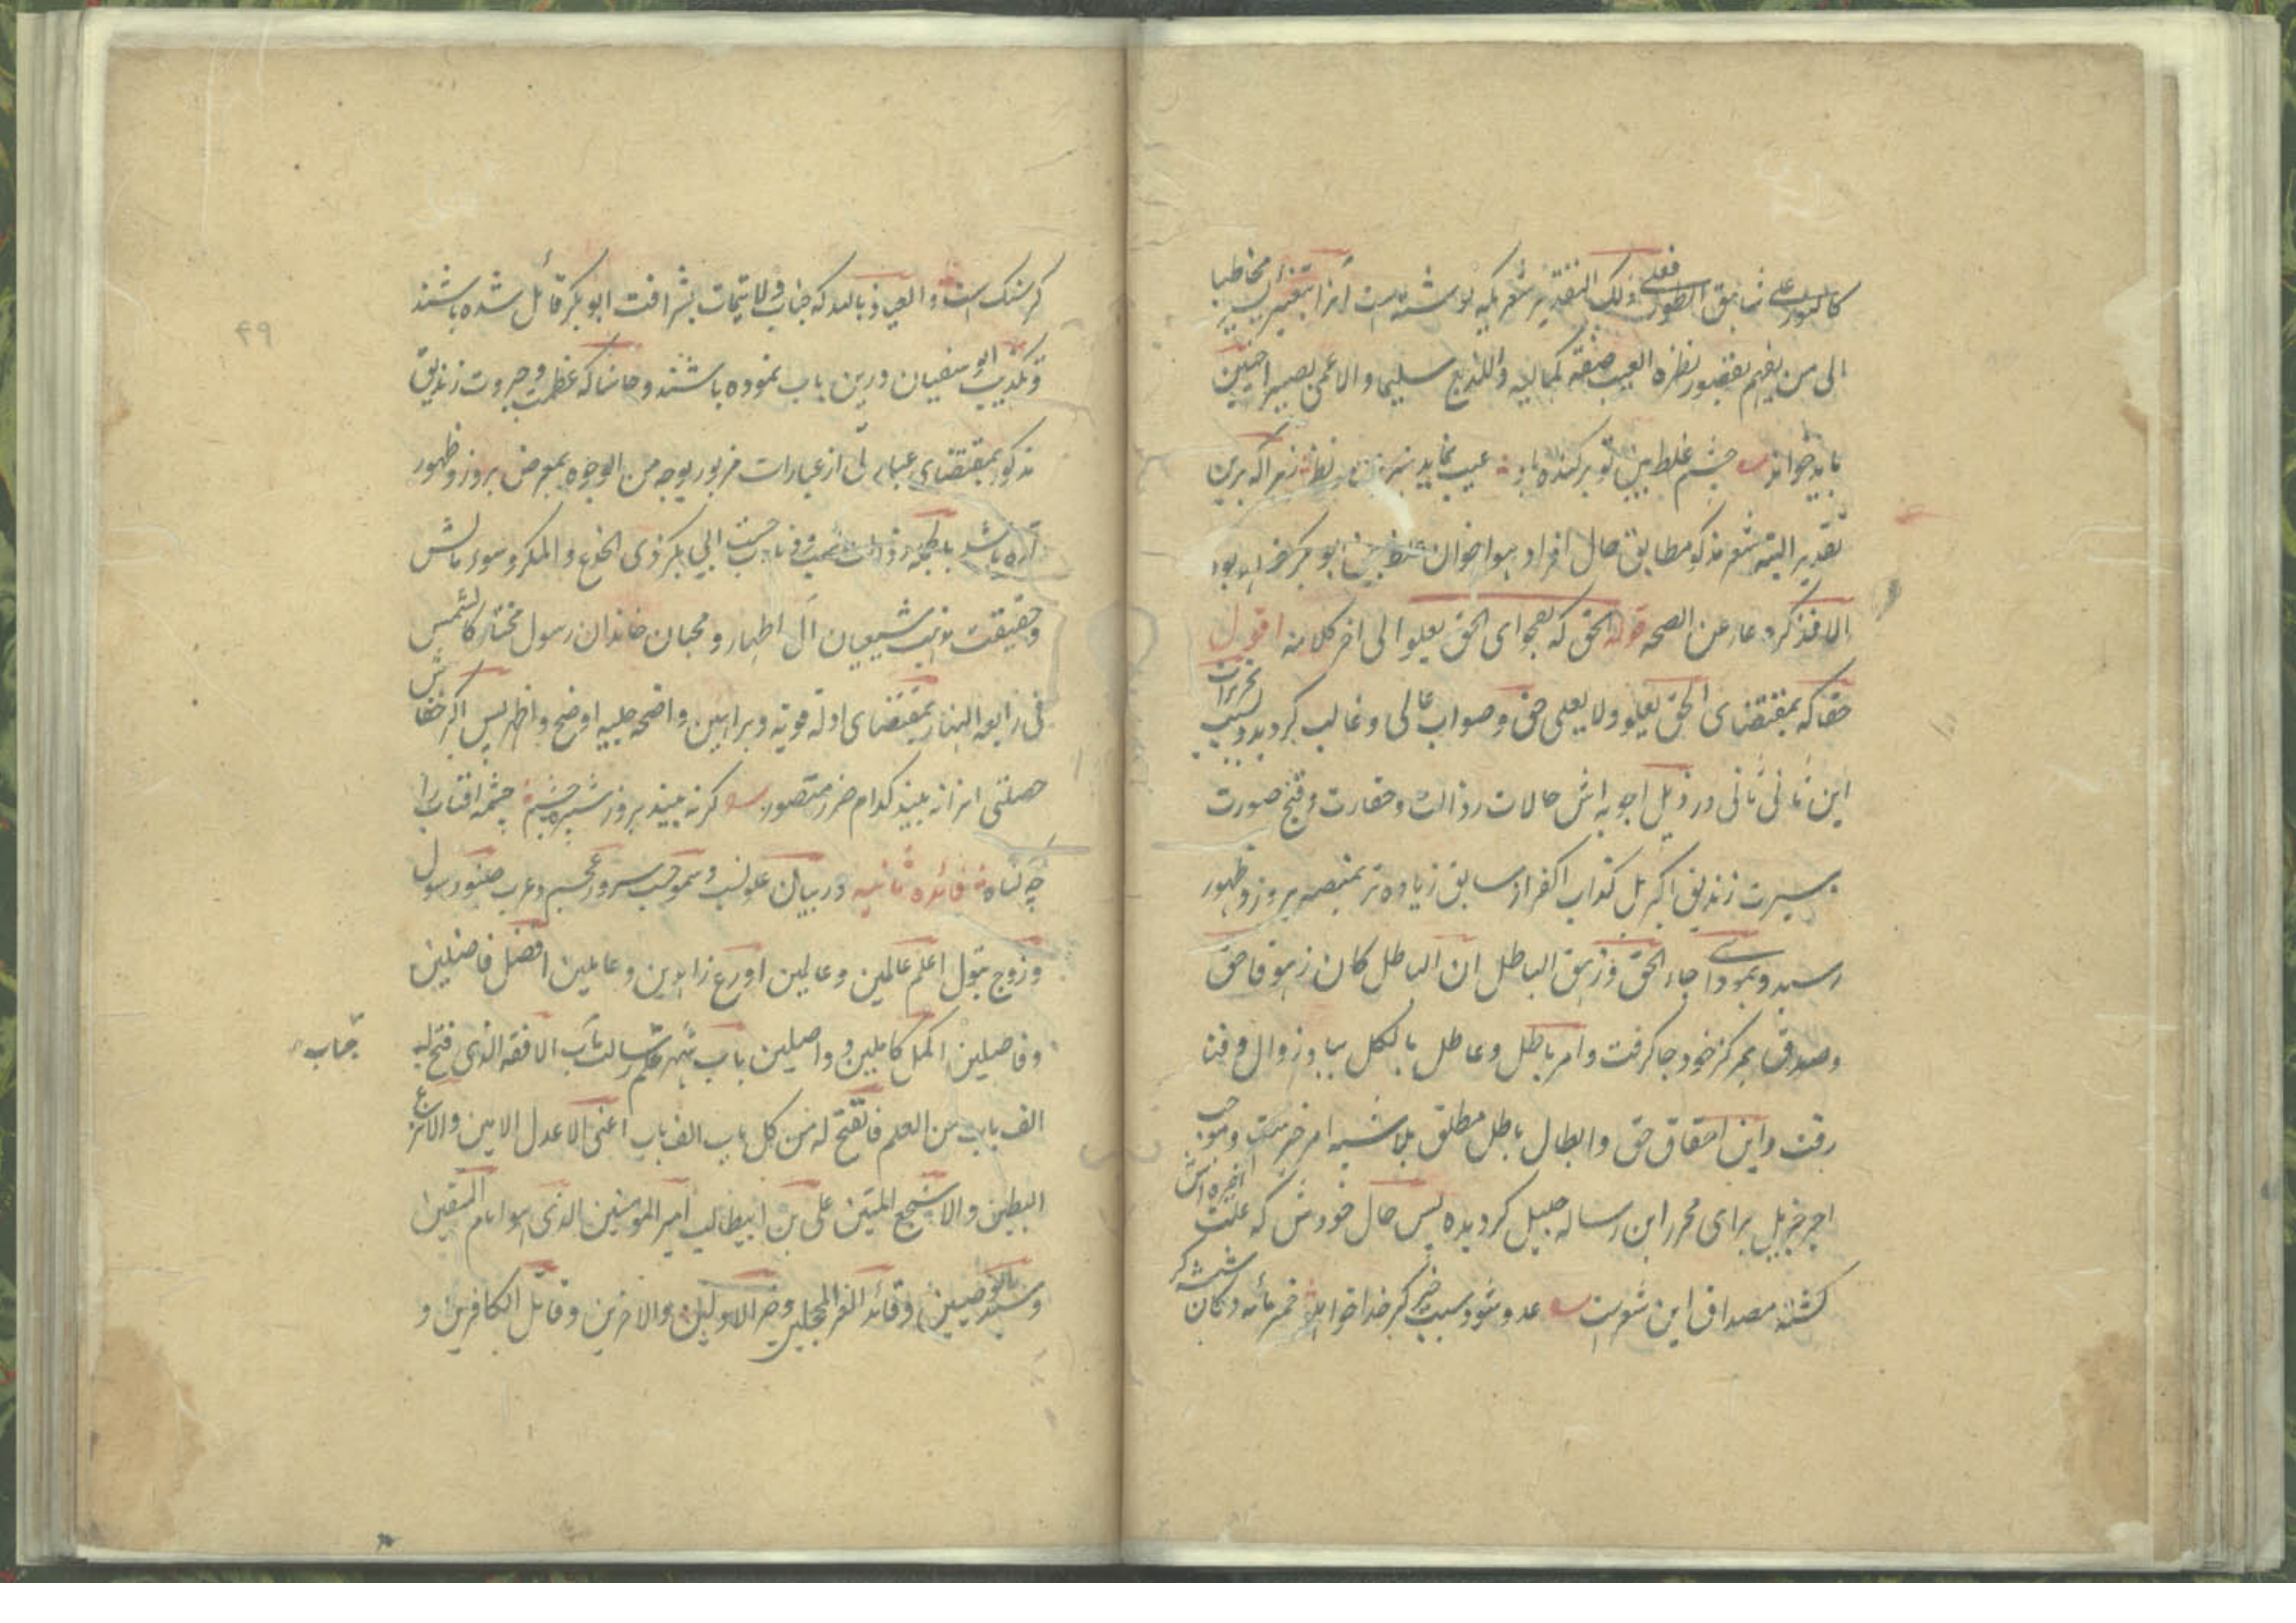 کالنور علی شاهق الطور فعلی ذلک التقدیر شعریکه نوشته است آنرا بتغییر یسیر مخاطبا
الی من یفهم بقصور نظره العیب صفة کمالیه واللدیغ سلیما والاعمی بصیرا چنین
باید خواند چشم غلط بین تو برکنده باد عیب نماید هنرش در نظر زیرا که برین
تقدیر البته شعر مذکور مطابق حال افراد هواخوان ابو بکر خواهد بود
الا فذکره عار عن الصحه قوله الحق که بفحوای الحق یعلو الی اخر کلامه اقول
حقا که بمقتضای الحق یعلو ولا یعلی حق و صواب عالی و غالب کردیده و بسبب تحریرات
این ثانی ثانی در ذیل اجوبه اش حالات رذالت و حقارت و قبح صورت
و سیرت زندیق اکبر بل کذاب اکفر از سابق زیاده تر بمنصه بروز و ظهور
رسید و بمودای جاء الحق و زهق الباطل ان الباطل کان زهوقا حق
و صدق بمرکز خود جا کرفت و امر باطل و عاطل بالکل بباد زوال و فنا
رفت و این احقاق حق و ابطال باطل مطلق بلا شبه امر خیرست و موجب
اجر جزیل برای محرر این رساله جمیل کردیده پس حال خودش که علت اخیره اش
کشته مصداق این شعرست عدو شود سبب خیر کر خدا خواهد خمیر مایه دکان شیشه کر
کر سنک است و العیاذ بالله که جناب ولایتماب بشرافت ابو بکر قائل شده باشند
و تکذیب ابو سفیان درین باب نموده باشند و حاشا که عظمت و جبروت زندیق
مذکور بمقتضای عبارتی از عبارات مزبور بوجه من الوجوه بمعرض بروز و ظهور
آمده باشد بلکه رذالت نسب و دنائت حسب ابی بکر ذی الخدع و المکر و سوء مالش
و حقیقت مذهب شیعیان آل اطهار و محبان خاندان رسول مختار کالشمس
فی رابعة النهار بمقتضای ادله قویه و براهین واضحه جلیه اوضح و اظهر پس اکر خفاش
صفتی انرا نه بیند کدام ضرر متصور کر نه بیند بروز شپره چشم چشمه افتاب را
چه کناه فائده ثانیه در بیان علو نسب و سمو حسب سرور عجم و عرب صنو رسول
و زوج بتول اعلم عالمین و عالمین اورع زاهدین و عاملین افضل فاضلین
و فاصلین اکمل کاملین و واصلین باب شهر علم رسالت مآب الافقه الذی فتح له
جناب
الف باب من العلم فانفتح له من کل باب الف باب اعنی الاعدل الامین والانزع
البطین والاشجع المتین علی بن ابیطالب امیر المومنین الذی هو امام المتقین
و سید الوصیین و قائد الغر المحجلین و خیر الاولین والاخرین و قاتل الکافرین و
۴۹